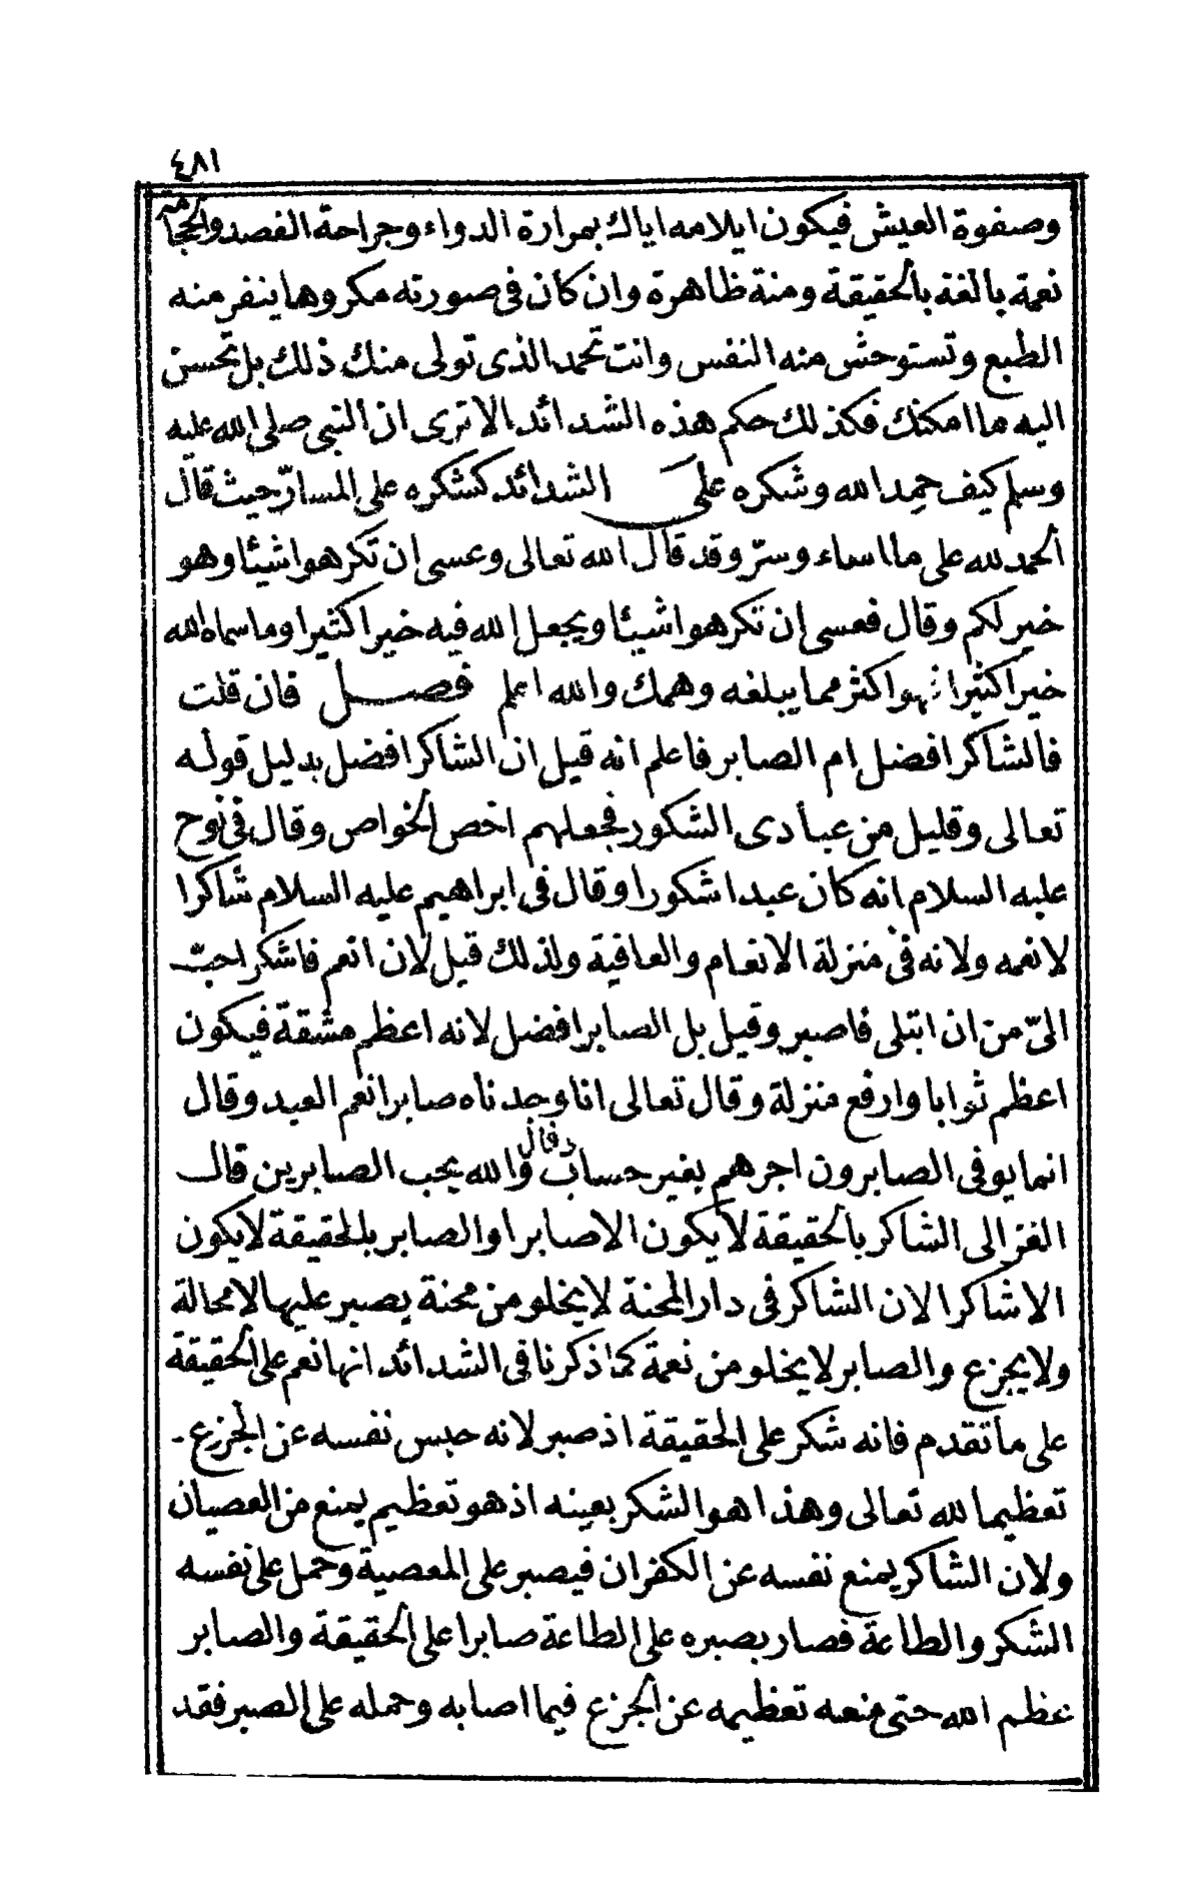 ٤٨١
وصفوة العيش فيكون ايلامه اياك بمرارة الدواء وجراحة الفصد والحجامة
نعمة بالغة بالحقيقة ومنة ظاهرة وان كان فى صورته مكروها ينفر منه
الطبع وتستوحش منه النفس وانت تحمد الذى تولى منك ذلك بل تحسن
اليه ما امكنك فكذلك حكم هذه الشدائد الا ترى ان النبى صلى الله عليه
وسلم كيف حمد الله وشكره على الشدائد كشكره على المسارّ حيث قال
الحمد لله على ما اساء وسرّ وقد قال الله تعالى وعسى ان تكرهوا شيئا وهو
خير لكم وقال فعسى ان تكرهوا شيئا ويجعل الله فيه خيرا كثيرا وما سماه الله
خيرا كثيرا فهو اكثر مما يبلغه وهمك والله اعلم فصل فان قلت
فالشاكر افضل ام الصابر فاعلم انه قيل ان الشاكر افضل بدليل قوله
تعالى وقليل من عبادى الشكور فجعلهم اخص الخواص وقال فى نوح
عليه السلام انه كان عبدا شكورا وقال فى ابراهيم عليه السلام شاكرا
لانعمه ولانه فى منزلة الانعام والعافية ولذلك قيل لان انعم فاشكر احبّ
الىّ من ان ابتلى فاصبر وقيل بل الصابر افضل لانه اعظم مشقة فيكون
اعظم ثوابا وارفع منزلة وقال تعالى انا وجدناه صابرا نعم العبد وقال
انما يوفى الصابرون اجرهم بغير حساب وقال والله يحب الصابرين قال
الغزالى الشاكر بالحقيقة لا يكون الا صابرا والصابر بالحقيقة لا يكون
الا شاكرا لان الشاكر فى دار المحنة لا يخلو من محنة يصبر عليها لا محالة
ولا يجزع والصابر لا يخلو من نعمة كما ذكرنا فى الشدائد انها نعم على الحقيقة
على ما تقدم فانه شكر على الحقيقة اذ صبر لانه حبس نفسه عن الجزع
تعظيما لله تعالى وهذا هو الشكر بعينه اذ هو تعظيم يمنع من العصيان
ولان الشاكر يمنع نفسه عن الكفران فيصبر على المعصية وحمل على نفسه
الشكر والطاعة فصار بصبره على الطاعة صابرا على الحقيقة والصابر
عظم الله حتى منعه تعظيمه عن الجزع فيما اصابه وحمله على الصبر فقد